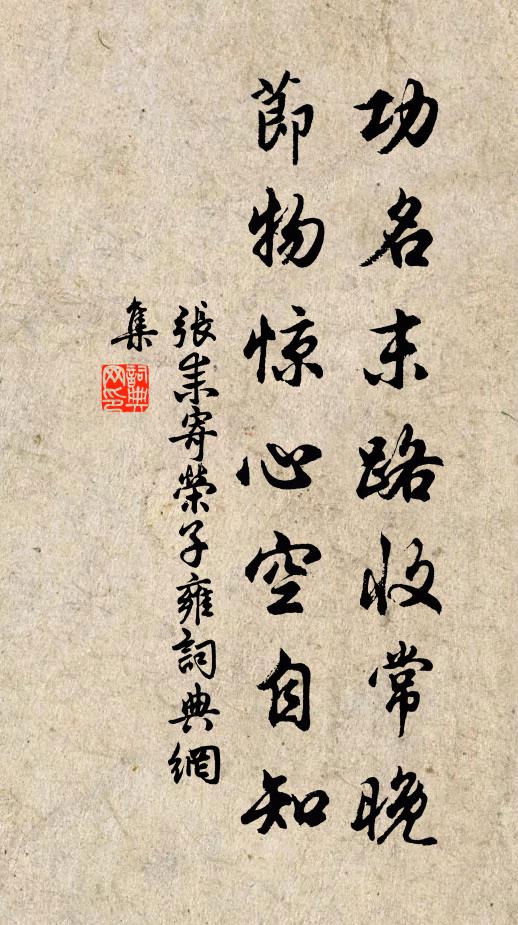 功名末路收常晚
節物惊心空自知
張耒寄榮子雍詞典網
集
詞典
网印